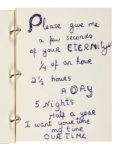 Please give me
a few seconds
of your ETERNity
1/4 of an hour
2 1/2 hours
A DAY
5 Nights
Half a year
I want your time
my time
OUR TIME